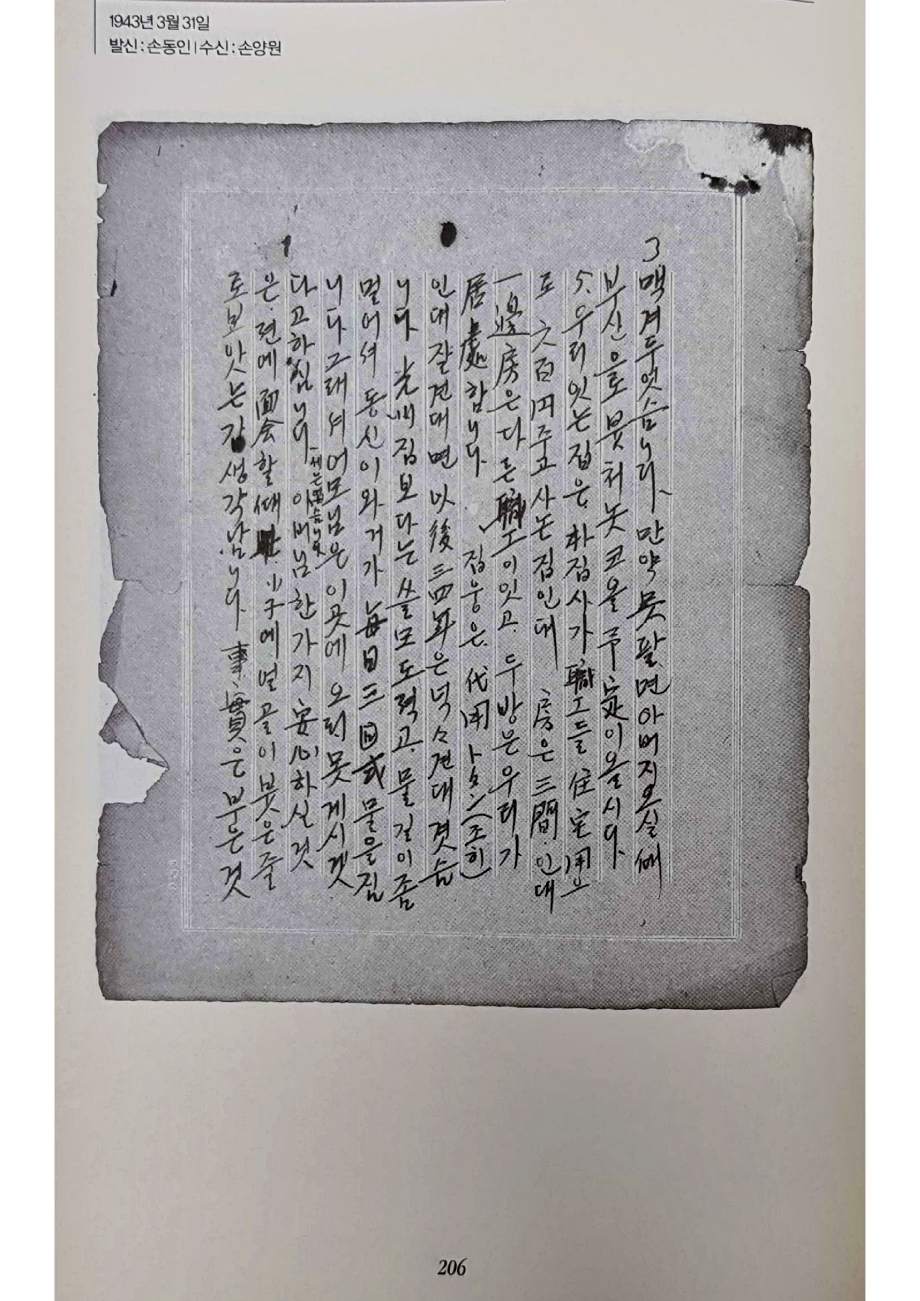 1943년 3월 31일
발신 : 손동인 | 수신 : 손양원
3
맥겨두엇슴니다. 만약 못팔면 아버지 오실 때
부산으로 붓처 놋코 올 予定이올시다.
5. 우리 잇는 집은, 朴집사가 職工들 住宅用으
로 六百円 주고 사논 집인대 房은 三間인대
一邊房은 다른 職工이 잇고, 두 방은 우리가
居處합니다. 집웅은, 代用トタン(조히)
인대 잘 견대면 以後 三四年은 넉々 견대겻슴
니다. 光州집보다는 쓸모도 적고, 물 길이 좀
멀어셔 동신이와 거가 每日 三回式 물을 집
니다. 그래셔 어모님은 이곳에 오터 못 게시겟
다고 하심니다. 아버님 한가지 安心하실 것
은, 전에 面会할 때 小子에 얼골이 붓은 줄
로 보앗는가 생각남니다. 事實은 부은 것
206